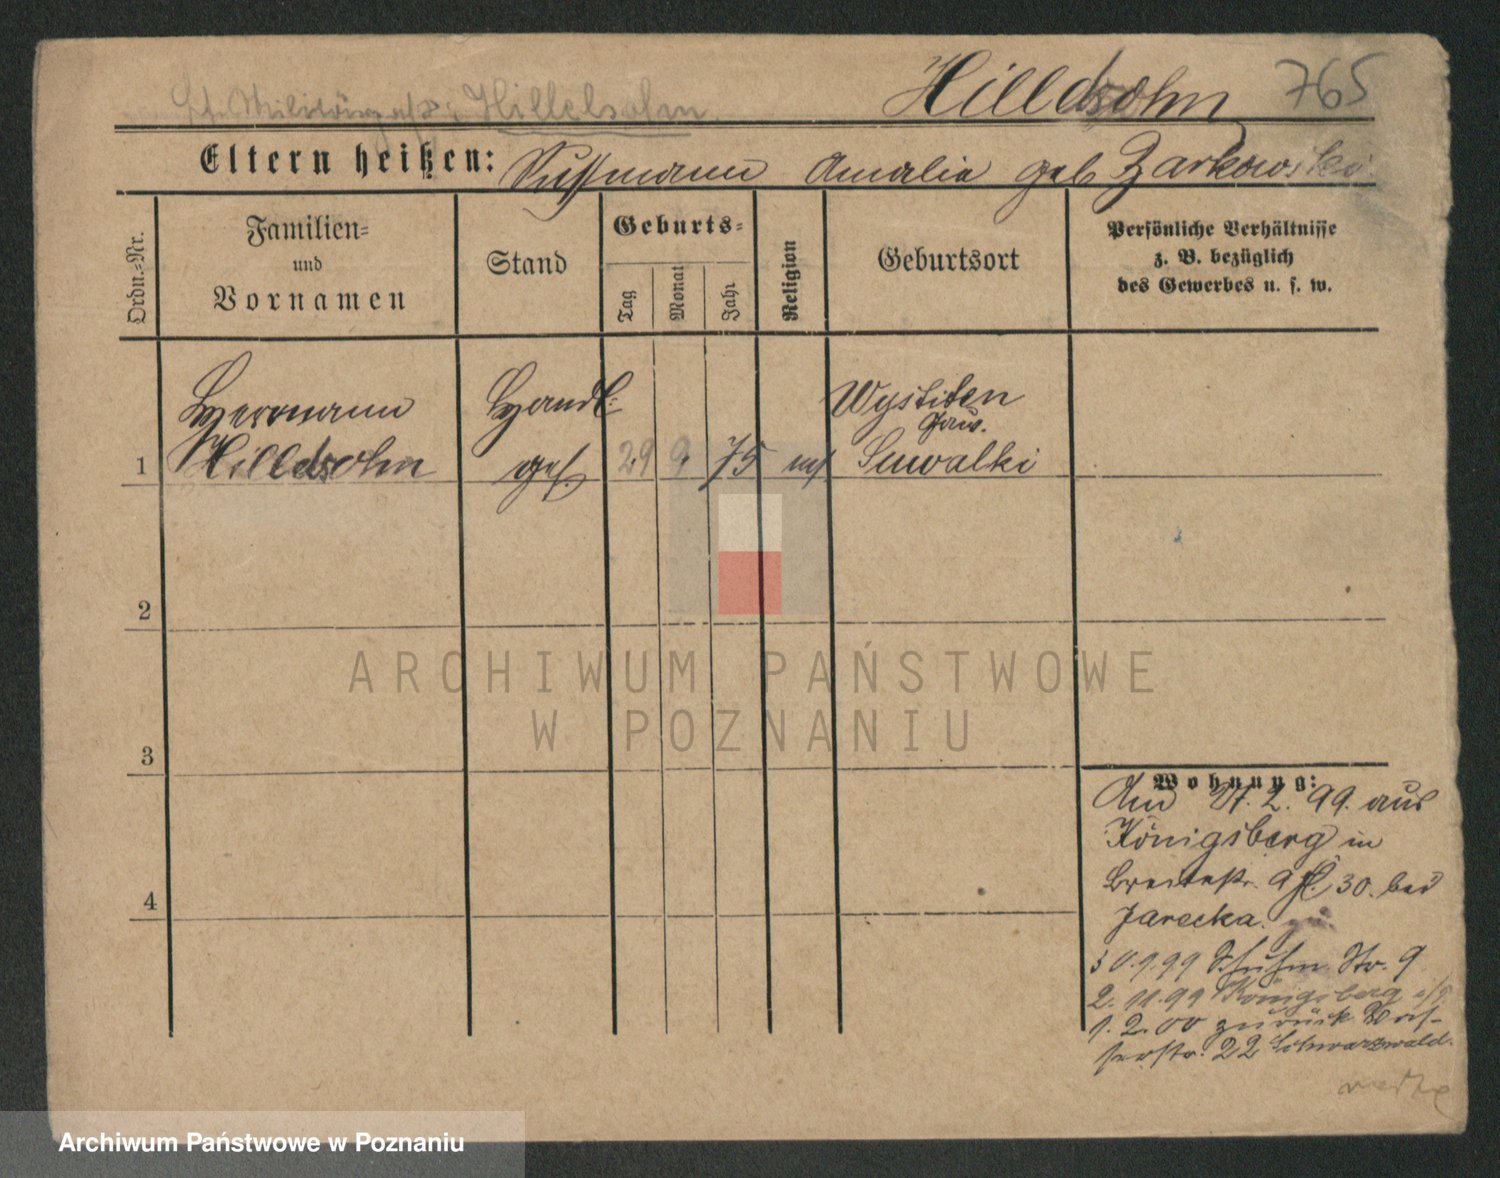 Lt. Militärpaß: Hillelsohn.
Hilldsohn 765
Eltern heißen: Sussmann Amalia geb Zarkowski
Ordn.-Nr.
Familien-
und
Vornamen
Stand
Geburts-
Tag
Monat
Jahr
Religion
Geburtsort
Persönliche Verhältnisse
z. B. bezüglich
des Gewerbes u. s. w.
Hermann
Handl:
Wystiten
Gouv.
1 Hilldsohn geh. 29 9. 75 mos Suwalki
2
ARCHIWUM PAŃSTWOWE
W POZNANIU
3
Wohnung:
27.2.99. aus
Königsberg in
Breitestr. 30. bei
Jarecka.
30.9.99 Str. 9
2.11.99 Königsberg
1.2.00 zurück Was-
serstr. 22 Schwarzwald.
Archiwum Państwowe w Poznaniu